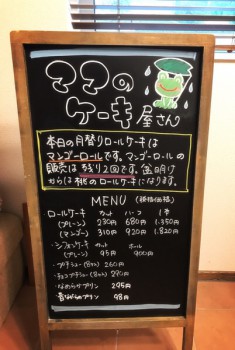 ママの
ケーキ屋さん
本日の月替りロールケーキは
マンゴーロールです。マンゴーロールの
販売は残り2回です。盆明け
からは桃のロールケーキになります。
MENU (税抜価格)
・ロールケーキ カット ハーフ 1本
(プレーン) 230 680 1.350
(マンゴー) 310 920 1.820
・シフォンケーキ カット ホール
(プレーン) 95 900
・プチシュー(8コ入) 260円
・チョコプチシュー(8コ入) 290円
・なめらかプリン 295円
・昔ながらのプリン 98円